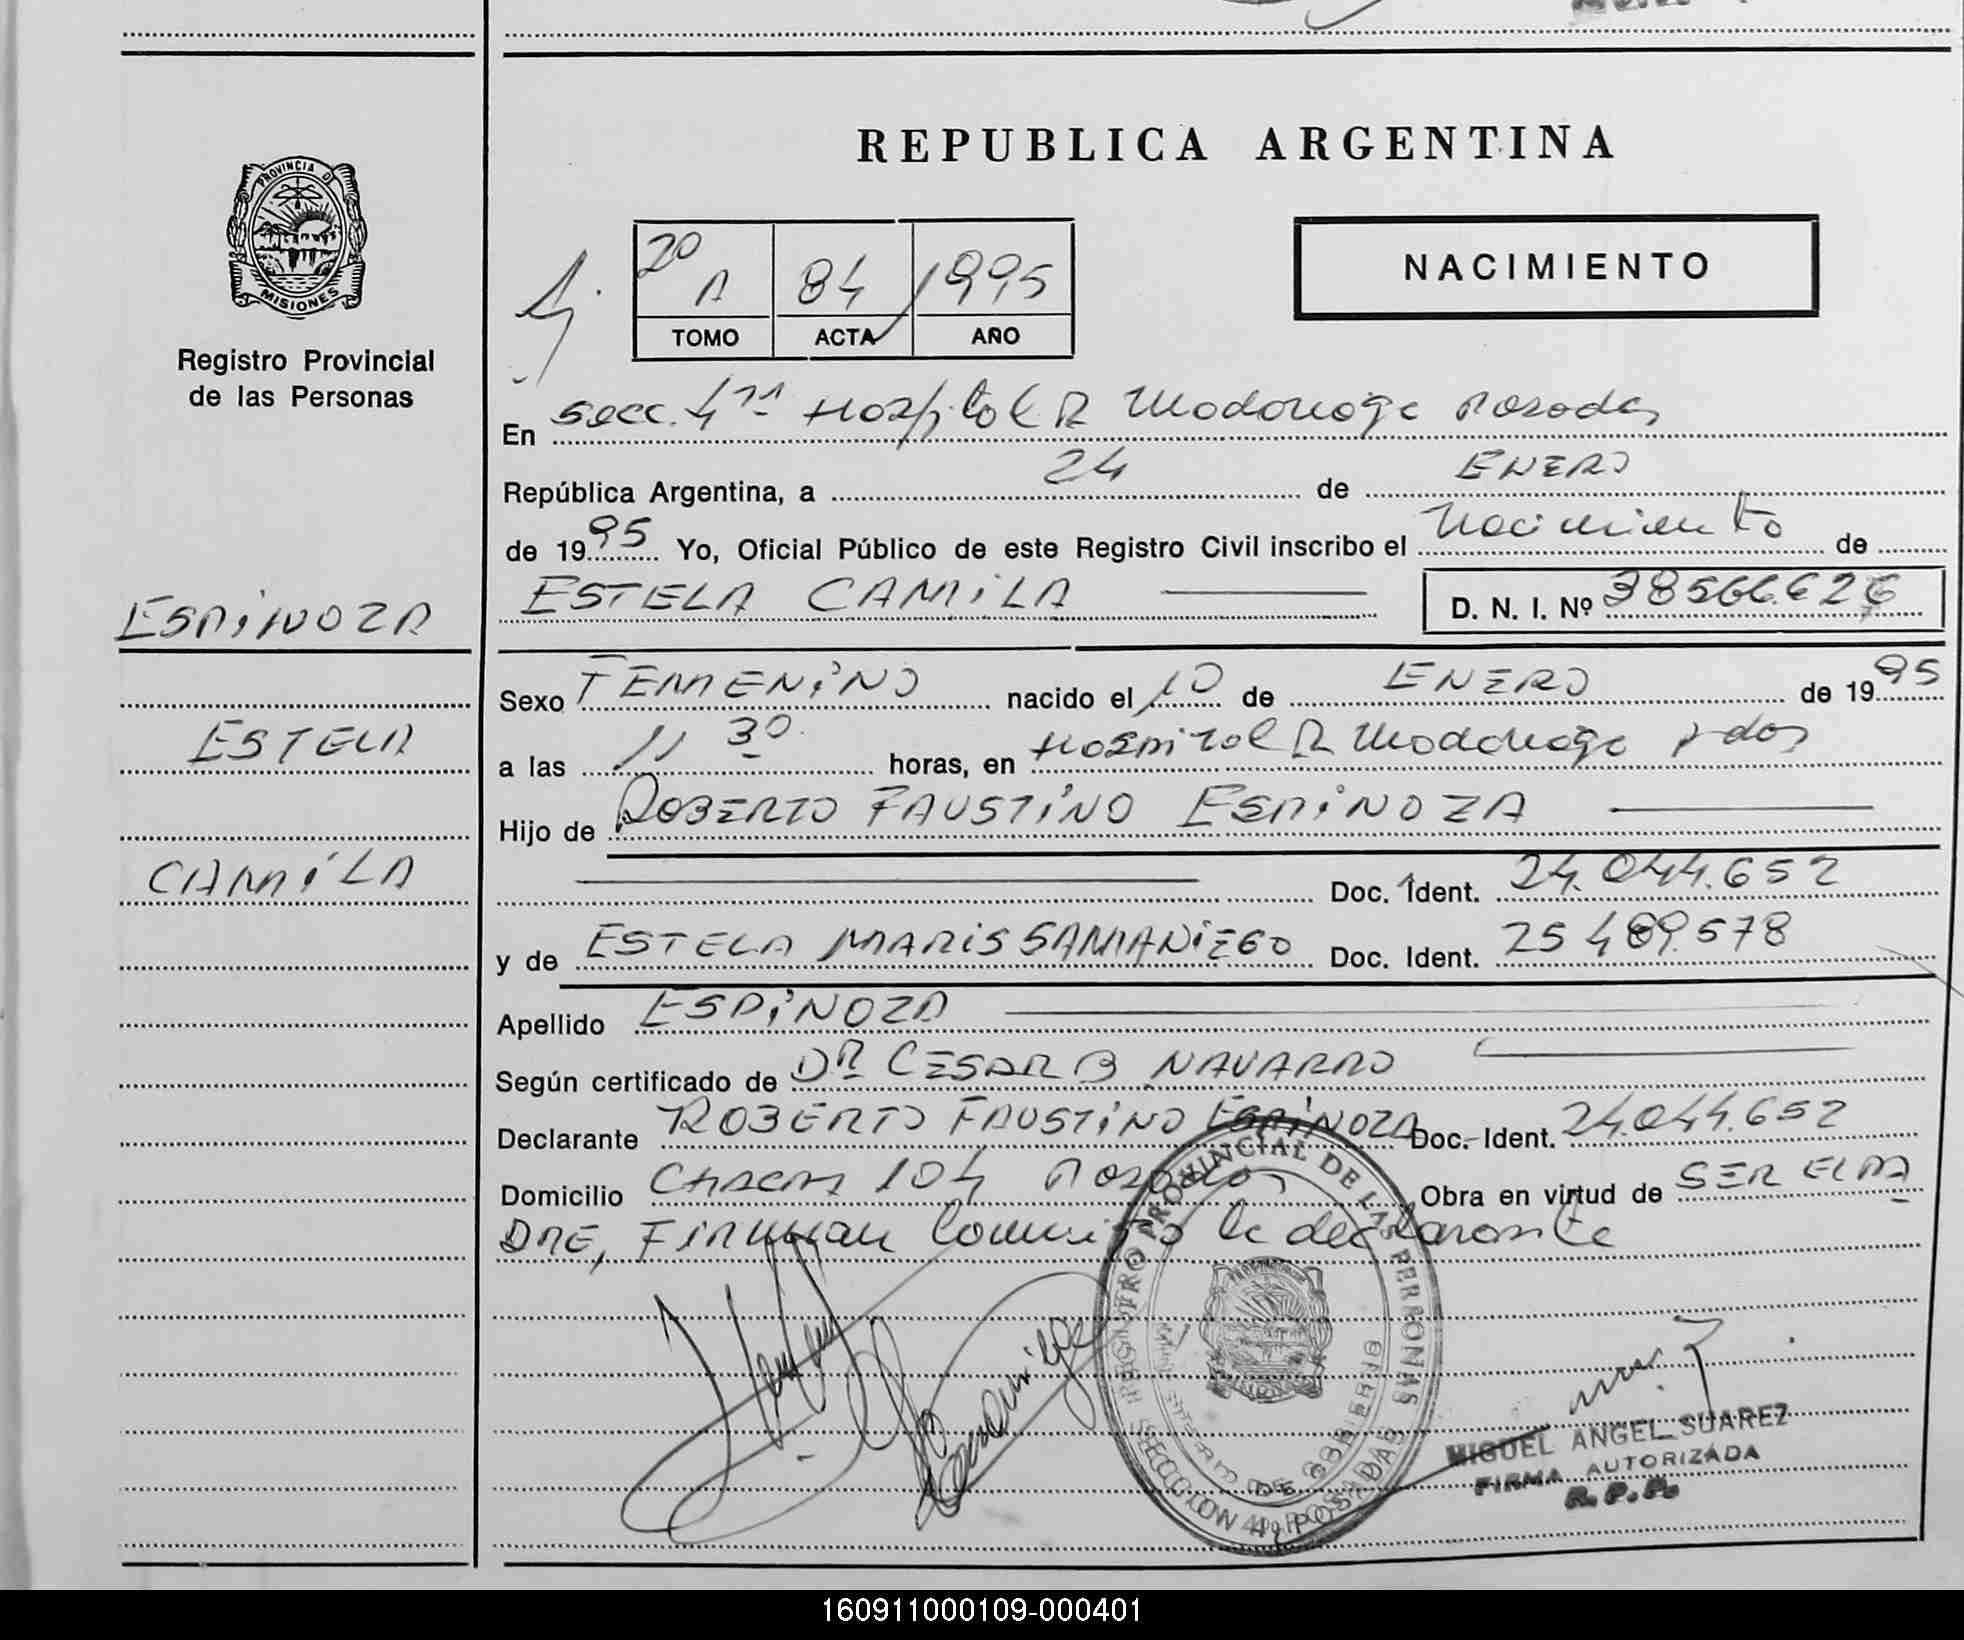 REPUBLICA ARGENTINA
PROVINCIA D
MISIONES
Registro Provincial
de las Personas
20 A 84 1995
TOMO ACTA AÑO
NACIMIENTO
En Secc. 4ta Hospital R Madariaga Posadas
República Argentina, a 24 de ENERO
de 1995 Yo, Oficial Público de este Registro Civil inscribo el Nacimiento de
ESTELA CAMILA D. N. I. Nº 38566.626
ESPINOZA
ESTELA
CAMILA
Sexo FEMENINO nacido el 10 de ENERO de 1995
a las 11 30 horas, en Hospital R Madariaga Pdas
Hijo de ROBERTO FAUSTINO ESPINOZA
Doc. Ident. 24.044.652
y de ESTELA MARIS SAMANIEGO Doc. Ident. 25 489.578
Apellido ESPINOZA
Según certificado de DR CESAR B NAVARRO
Declarante ROBERTO FAUSTINO ESPINOZA Doc. Ident. 24.044.652
Domicilio CHACRA 104 Posadas Obra en virtud de SER EL PA
DRE, FIRMAN conmigo la declarante
REGISTRO PROVINCIAL DE LAS PERSONAS
MINISTERIO DE GOBIERNO
SECCION 4ta POSADAS
MIGUEL ANGEL SUAREZ
FIRMA AUTORIZADA
R. P. P.
160911000109-000401